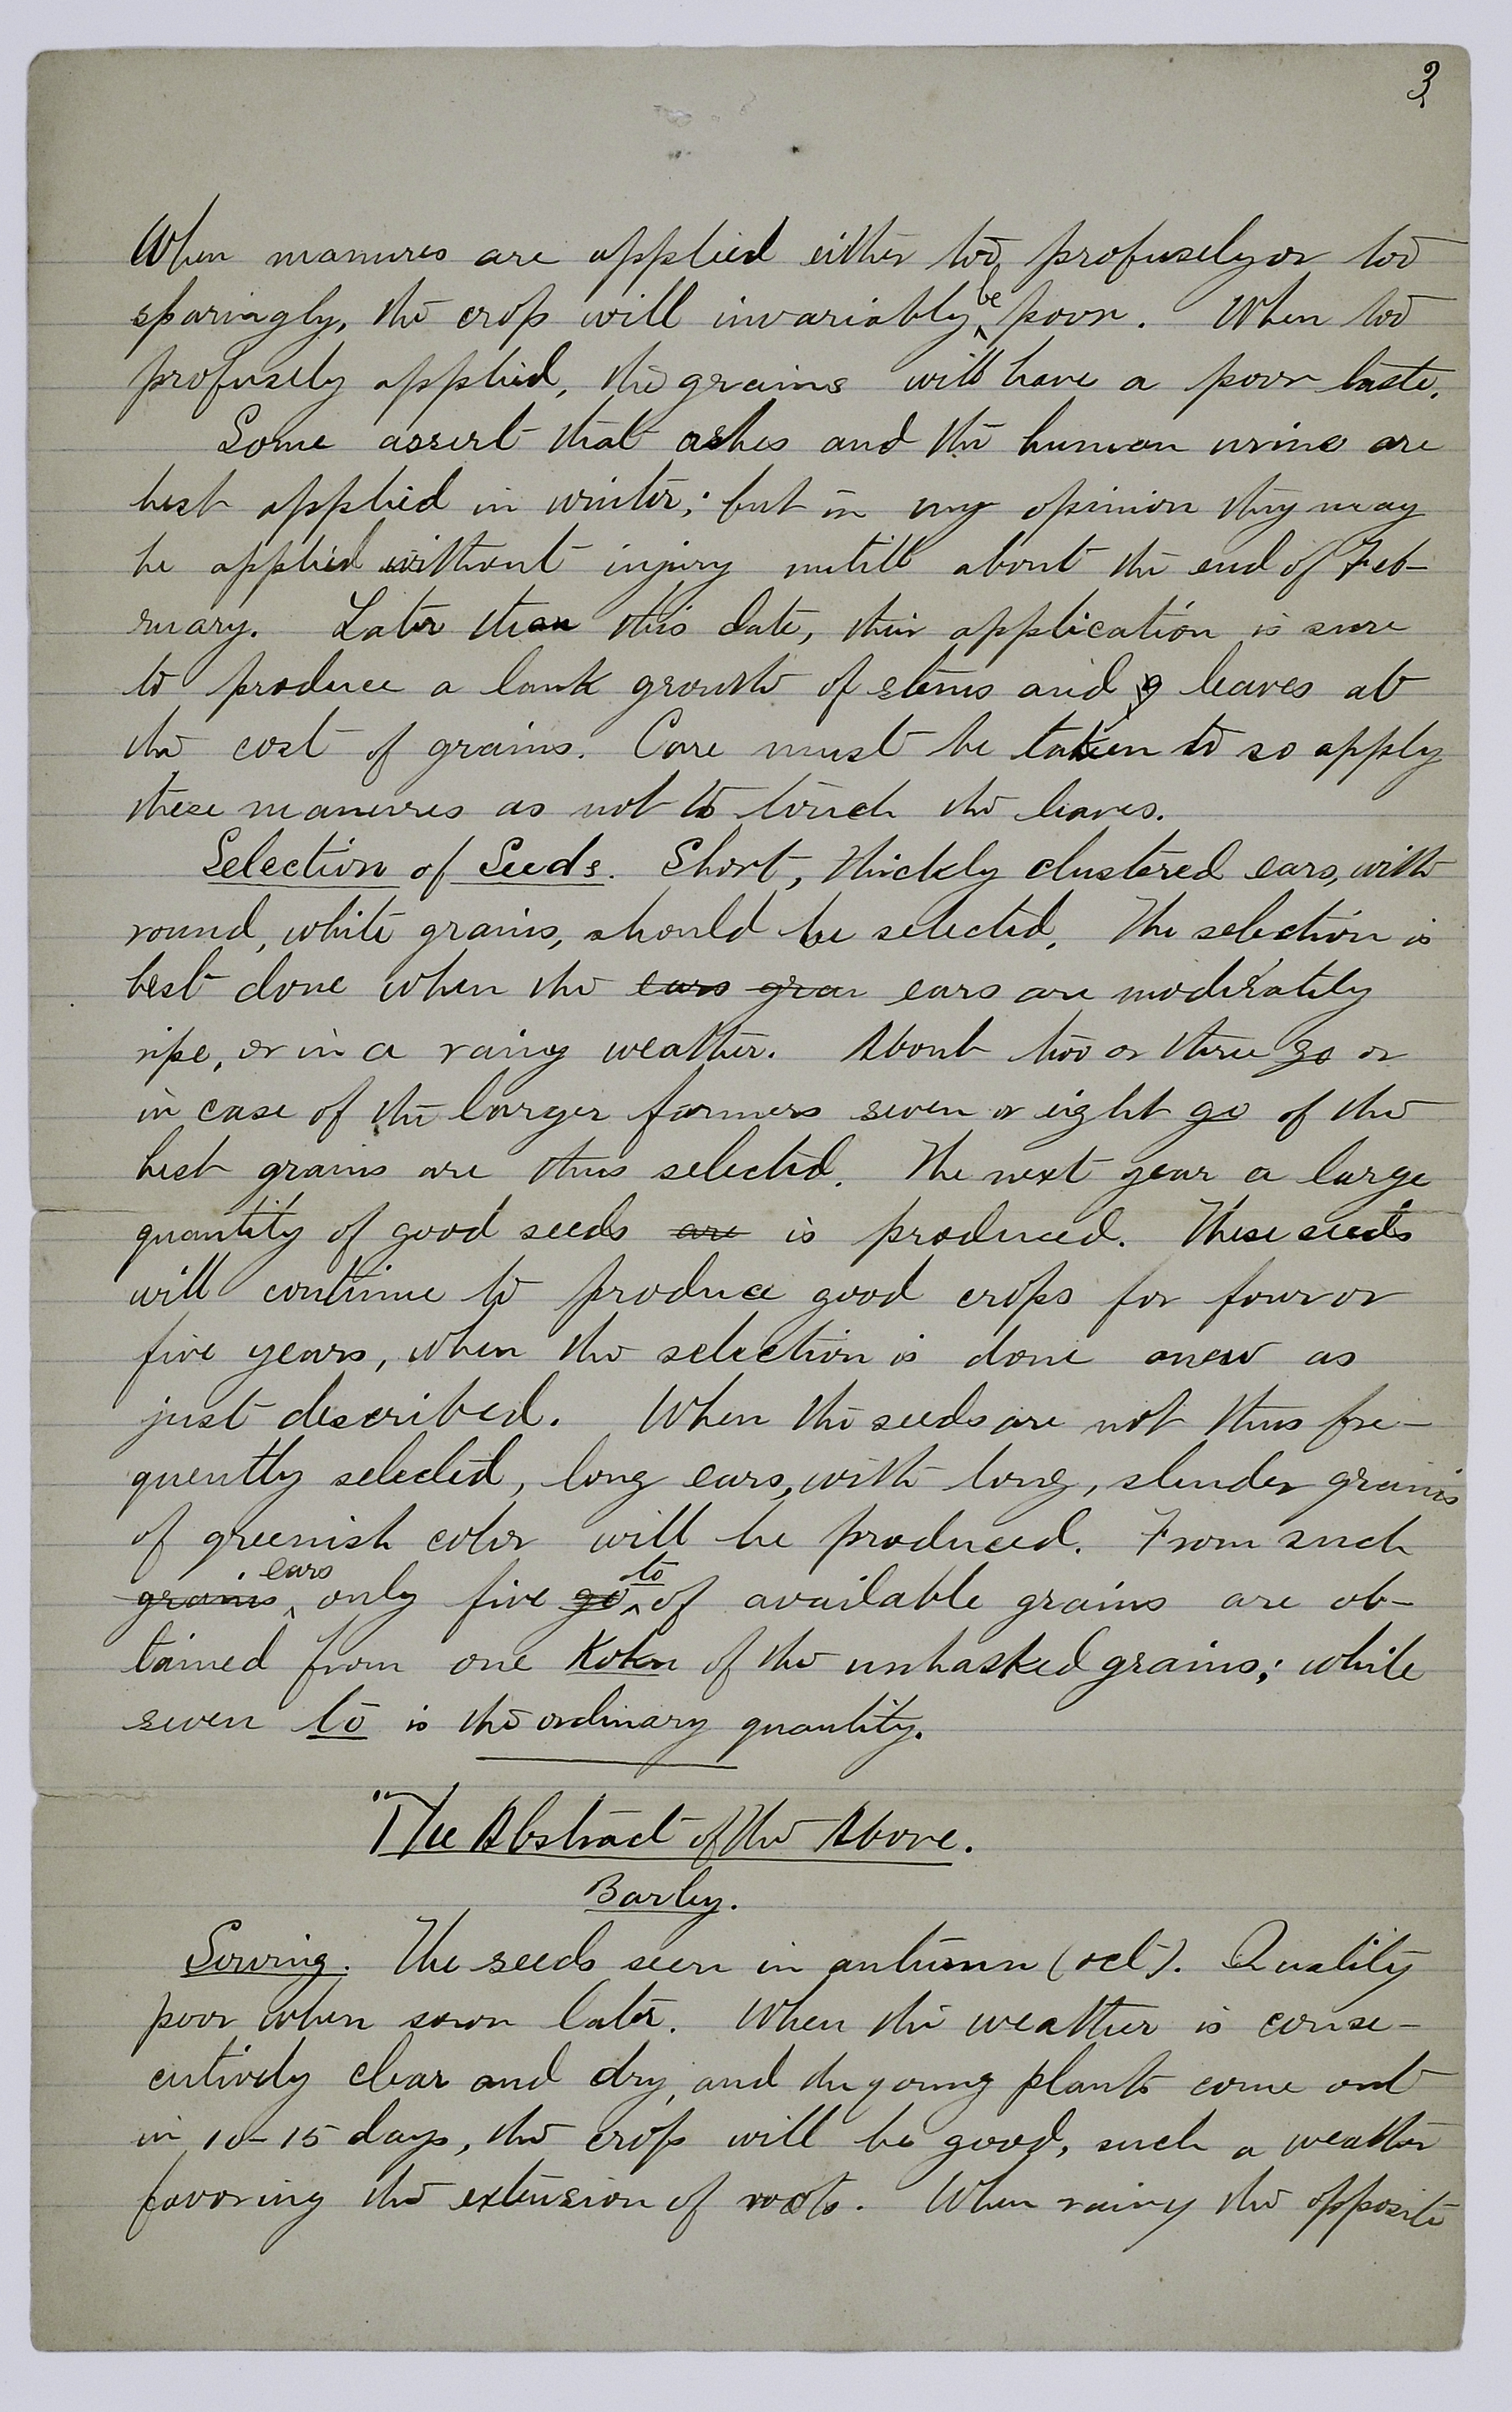 3
When manures are applied either too profusely or too
sparingly, the crop will invariably be poor. When too
profusely applied, the grains will have a poor taste.
Some assert that ashes and the human urine are
best applied in winter; but in my opinion they may
be applied without injury untill about the end of Feb-
ruary. Later than this date, their application is sure
to produce a lank growth of stems and leaves at
the cost of grains. Care must be taken to so apply
these manures as not to touch the leaves.
Selection of Seeds. Short, thickly clustered ears, with
round, white grains, should be selected. The selection is
best done when the ears gran ears are moderately
ripe, or in a rainy weather. About two or three go or
in case of the larger farmers seven or eight go of the
best grains are thus selected. The next year a large
quantity of good seeds are is produced. These seeds
will continue to produce good crops for four or
five years, when the selection is done anew as
just described. When the seeds are not thus fre-
quently selected, long ears, with long, slender grains
of greenish color will be produced. From such
grains ears only five go to of available grains are ob-
tained from one Koku of the unhasked grains; while
seven to is the ordinary quantity.
The Abstract of the Above.
Barley.
Sowing. The seeds seen in autumn (oct). Quality
poor when sown later. When the weather is conse-
cutively clear and dry, and the young plants come out
in 10-15 days, the crop will be good, such a weather
favoring the extension of roots. When rainy the opposite